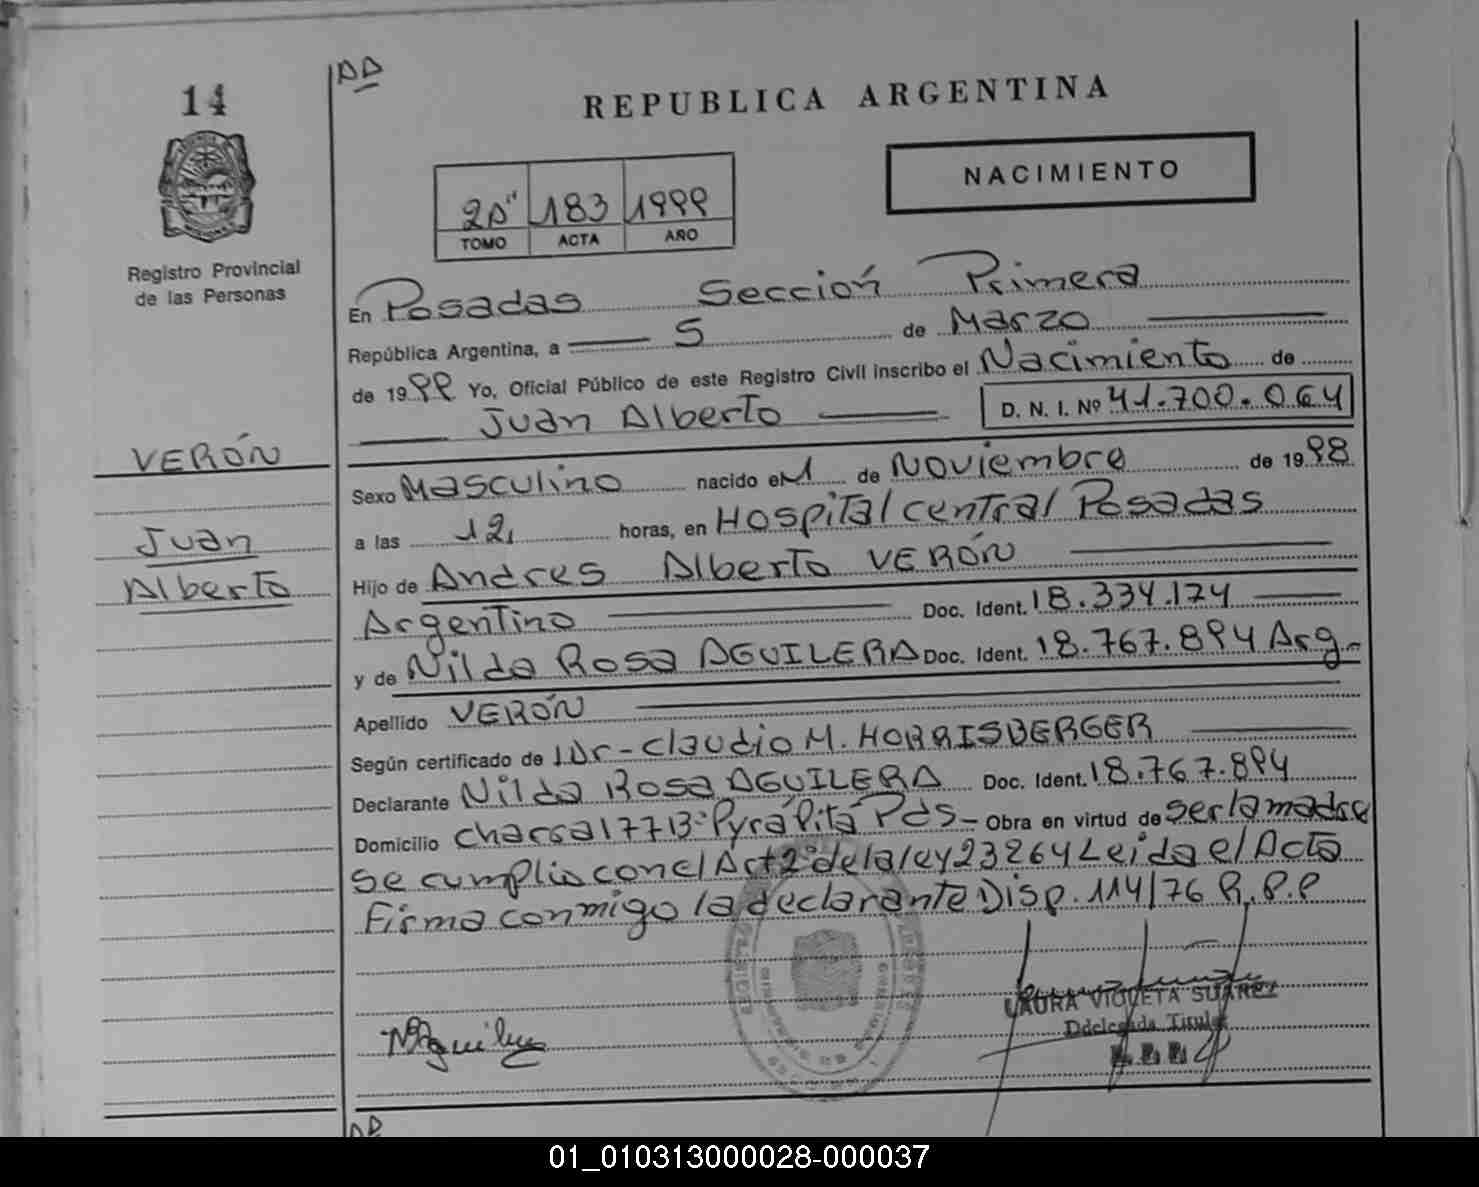 14
AA
REPUBLICA ARGENTINA
NACIMIENTO
2A" 183 1999
TOMO ACTA AÑO
Registro Provincial
de las Personas
En Posadas Sección Primera
República Argentina, a 5 de Marzo
de 1999 Yo, Oficial Público de este Registro Civil inscribo el Nacimiento de
Juan Alberto D. N. I. Nº 41.700.064
VERÓN
Juan
Alberto
Sexo Masculino nacido el 1 de Noviembre de 1998
a las 12, horas, en Hospital central Posadas
Hijo de Andres Alberto VERÓN
Argentino Doc. Ident. 18.334.174
y de Nilda Rosa AGUILERA Doc. Ident. 18.767.894 Arg.
Apellido VERÓN
Según certificado de Dr. Claudio M. HORRISBERGER
Declarante Nilda Rosa AGUILERA Doc. Ident. 18.767.894
Domicilio chacra 177 Bº Pyrá Pitá Pds - Obra en virtud de ser la madre
Se cumplio con el Art 2º de la ley 23264 Leida el Acta
Firma conmigo la declarante Disp. 114/76 R.P.P
LAURA VIOLETA SUAREZ
Delegada Titular
AA
01_010313000028-000037